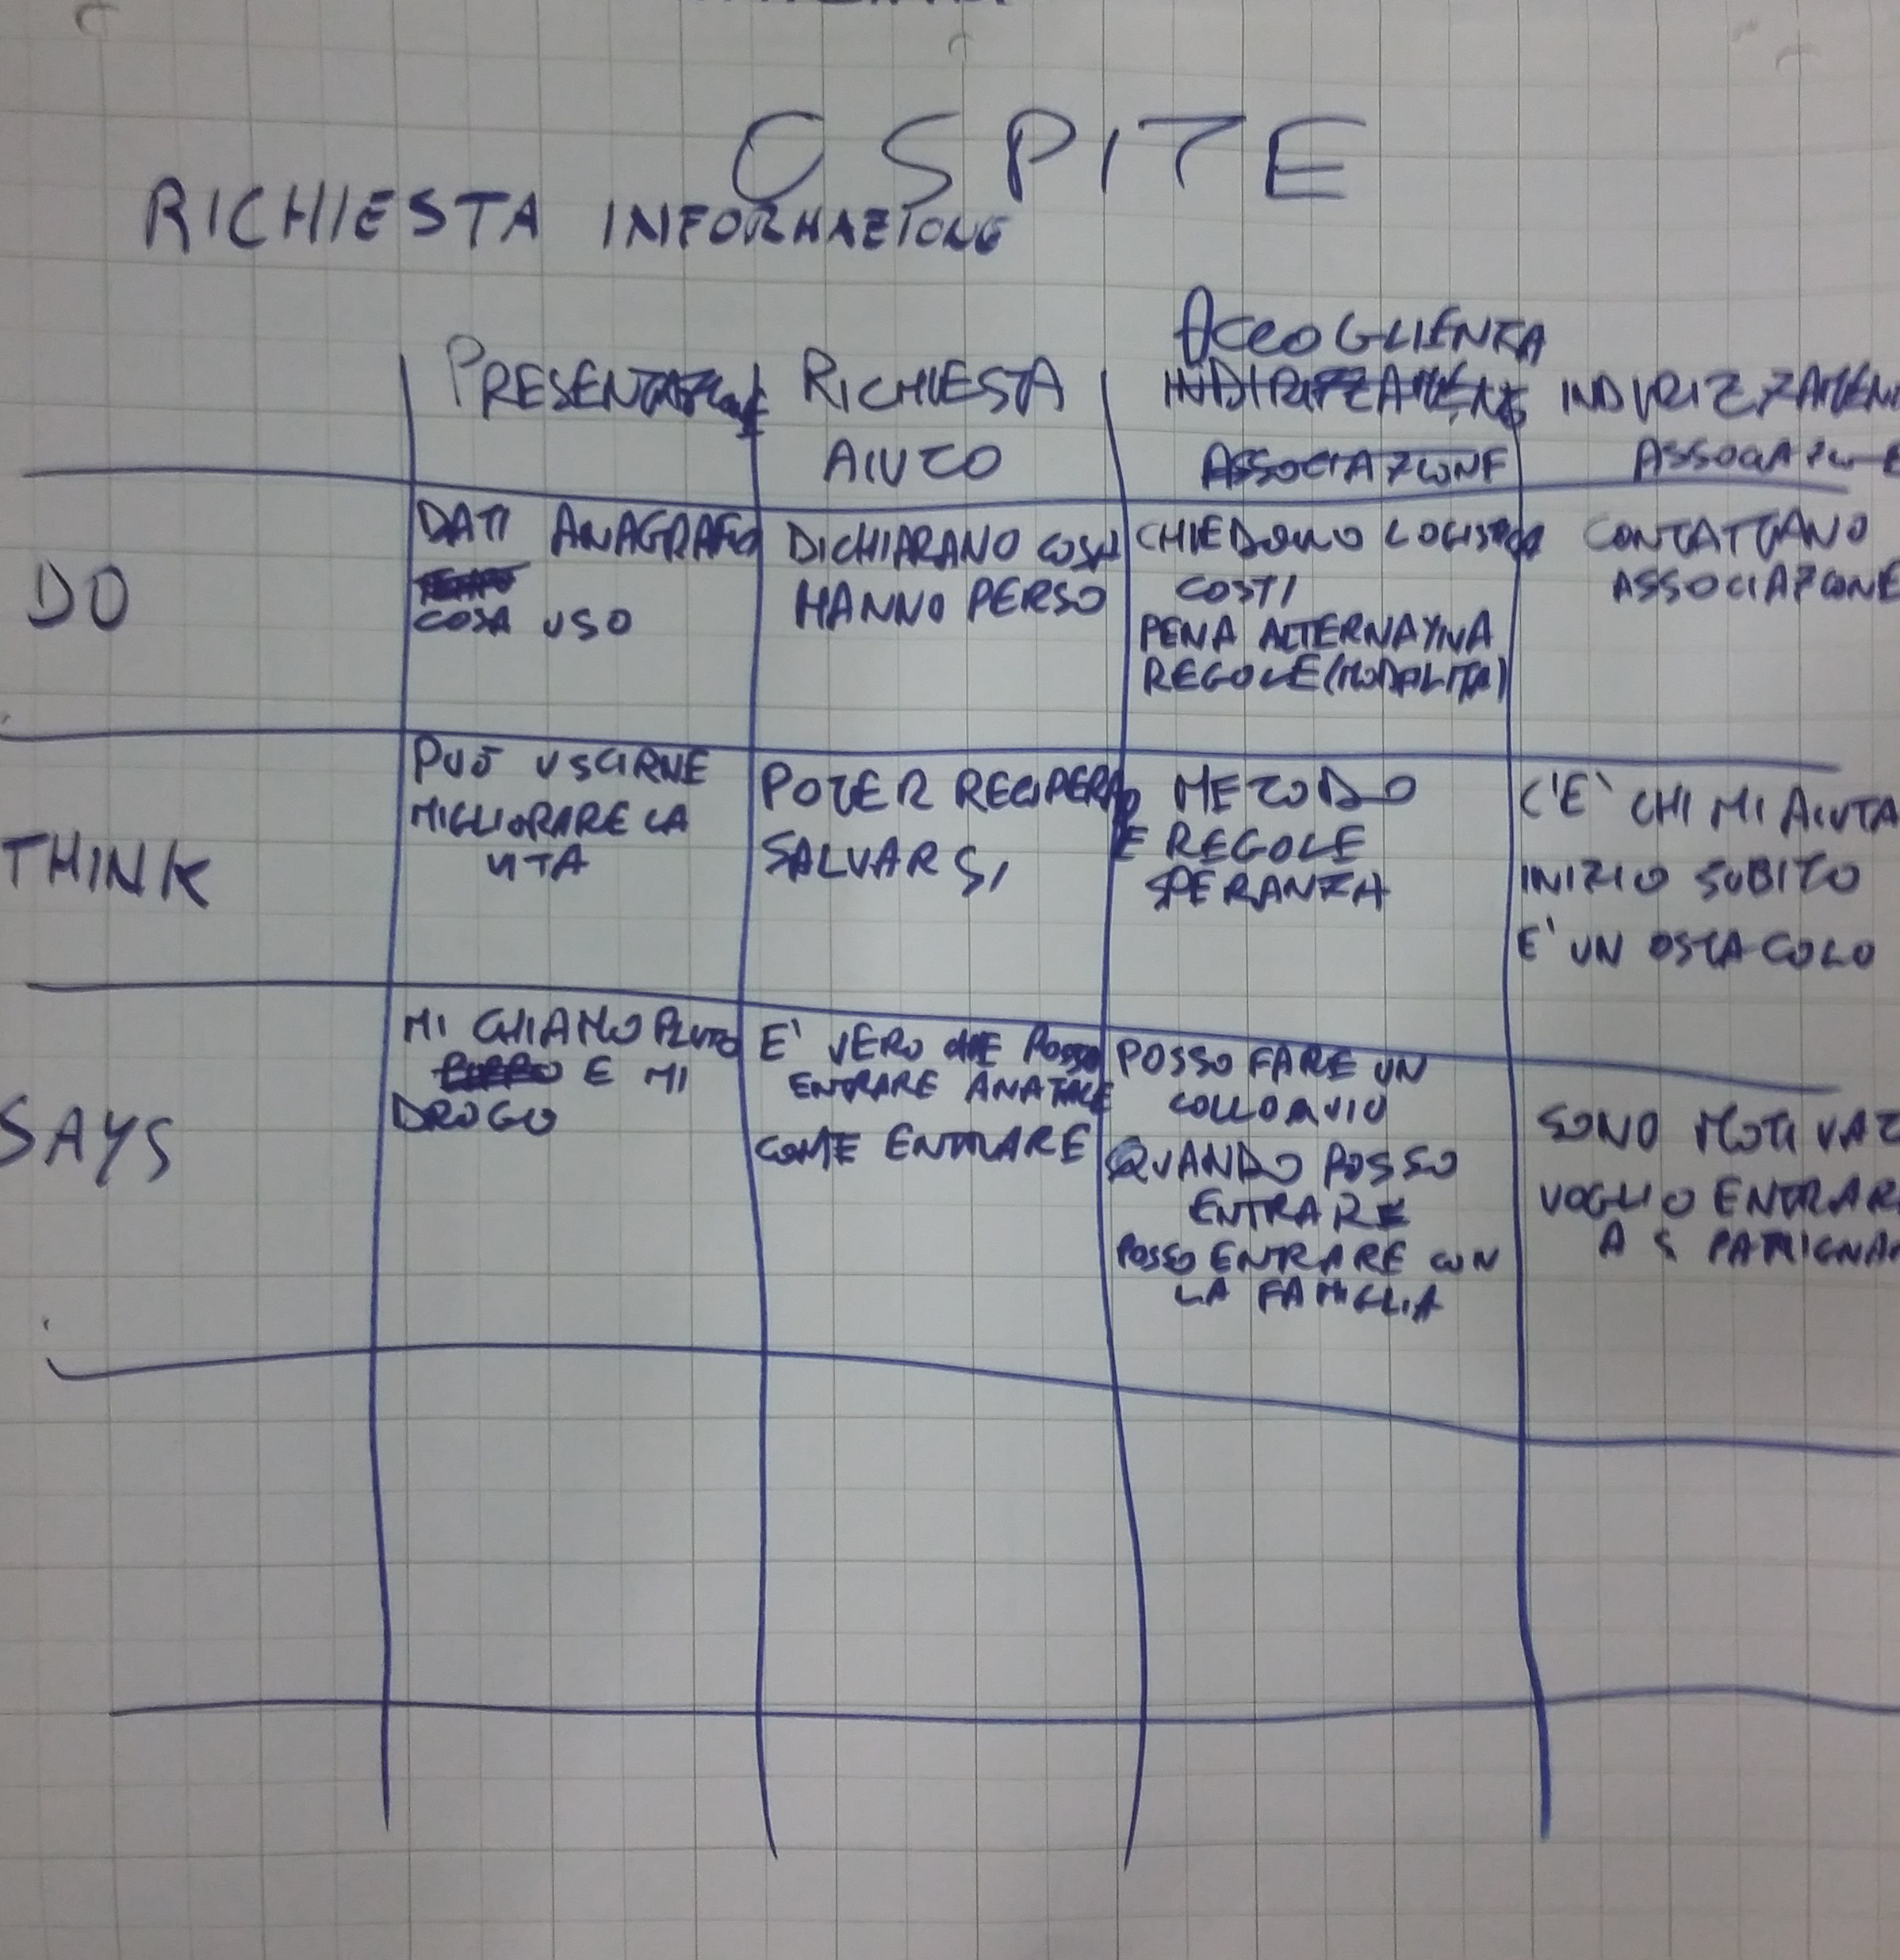 OSPITE
RICHIESTA INFORMAZIONE
PRESENTAZIONE
RICHIESTA
AIUTO
ACCOGLIENZA
INDIRIZZAMENTO
ASSOCIAZIONE
INDIRIZZAMEN
ASSOCIAZIONE
DO
DATI ANAGRAFICI
COSA USO
DICHIARANO COSA
HANNO PERSO
CHIEDONO LOGISTICA
COSTI
PENA ALTERNATIVA
REGOLE (MODALITA)
CONTATTANO
ASSOCIAZIONE
THINK
PUÒ USCIRNE
MIGLIORARE LA
VITA
POTER RECUPERARE
SALVARSI
METODO
E REGOLE
SPERANZA
C'E' CHI MI AIUTA
INIZIO SUBITO
E' UN OSTACOLO
SAYS
MI CHIAMO PLUTO
E MI
DROGO
E' VERO CHE POSSO
ENTRARE A NATALE
COME ENTRARE
POSSO FARE UN
COLLOQUIO
QUANDO POSSO
ENTRARE
POSSO ENTRARE CON
LA FAMIGLIA
SONO MOTIVAT
VOGLIO ENTRAR
A S PATRIGNA